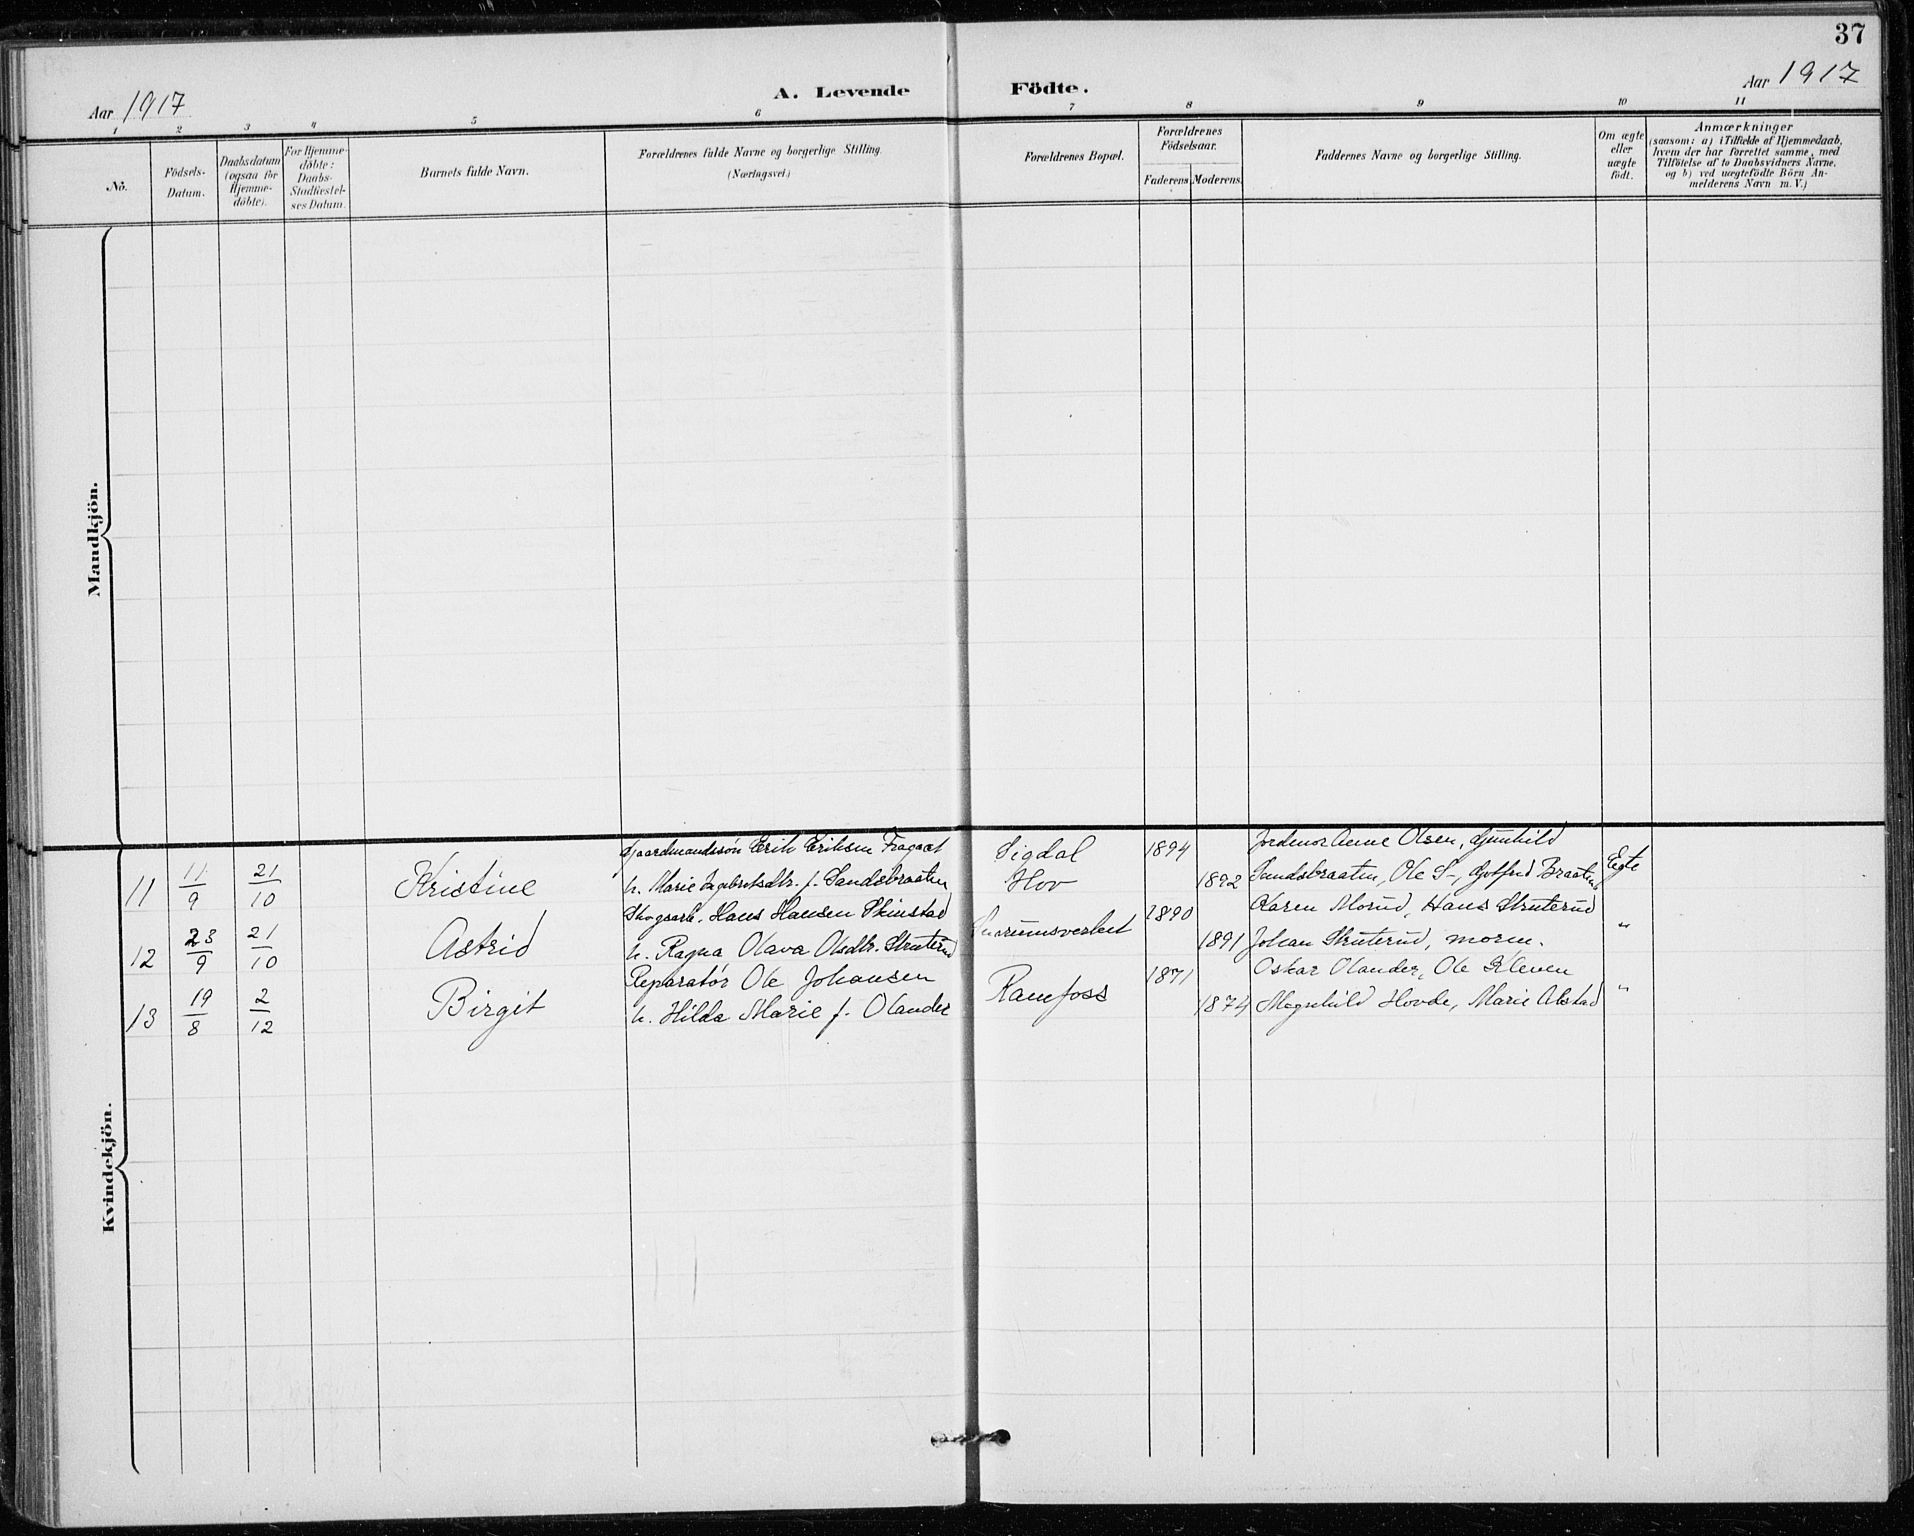 37
Aar 1917
A. Levende Födte.
Aar 1917
1 2 3 4 5 6 7 8 9 10 11
No.
Födsels-
Datum.
Daabsdatum
(ogsaa for
Hjemme-
döbte).
For Hjemme-
döbte:
Daabs-
Stadfæstel-
ses Datum.
Barnets fulde Navn.
Forældrenes fulde Navne og borgerlige Stilling.
(Næringsvei.)
Forældrenes Bopæl.
Forældrenes
Födselsaar.
Faderens Moderens.
Faddernes Navne og borgerlige Stilling.
Om ægte
eller
uægte
födt.
Anmærkninger
(saasom: a) i Tilfælde af Hjemmedaab,
hvem der har forrettet samme, med
Tilföielse af to Daabsvidners Navne,
og b) ved uægtefödte Börn An-
melderens Navn m. V.)
Mandkjön.
Kvindekjön.
Gaardmandssøn Erik Eriksen Sigdal 1894 Olsen, Gunhild
11 11/9 21/10 Kristine h. Marie Ingebretsdtr. f. Sandsbraaten Hov 1892 Sandsbraaten, Ole S-, Braaten Egte
Skogsarb. Hans Hansen Skinstad 1890 Karen Morud, Hans Struterud
12 23/9 21/10 Astrid h. Ragna Olava Olsdtr. Struterud Snarumsverket 1891 Johan Struterud, moren. "
Reparatør Ole Johansen 1871 Oskar Olander, Ole Kleven
13 19/8 2/12 Birgit h. Hilda Marie f. Olander Ramfoss 1874 Magnhild Hovde, Marie Alstad "